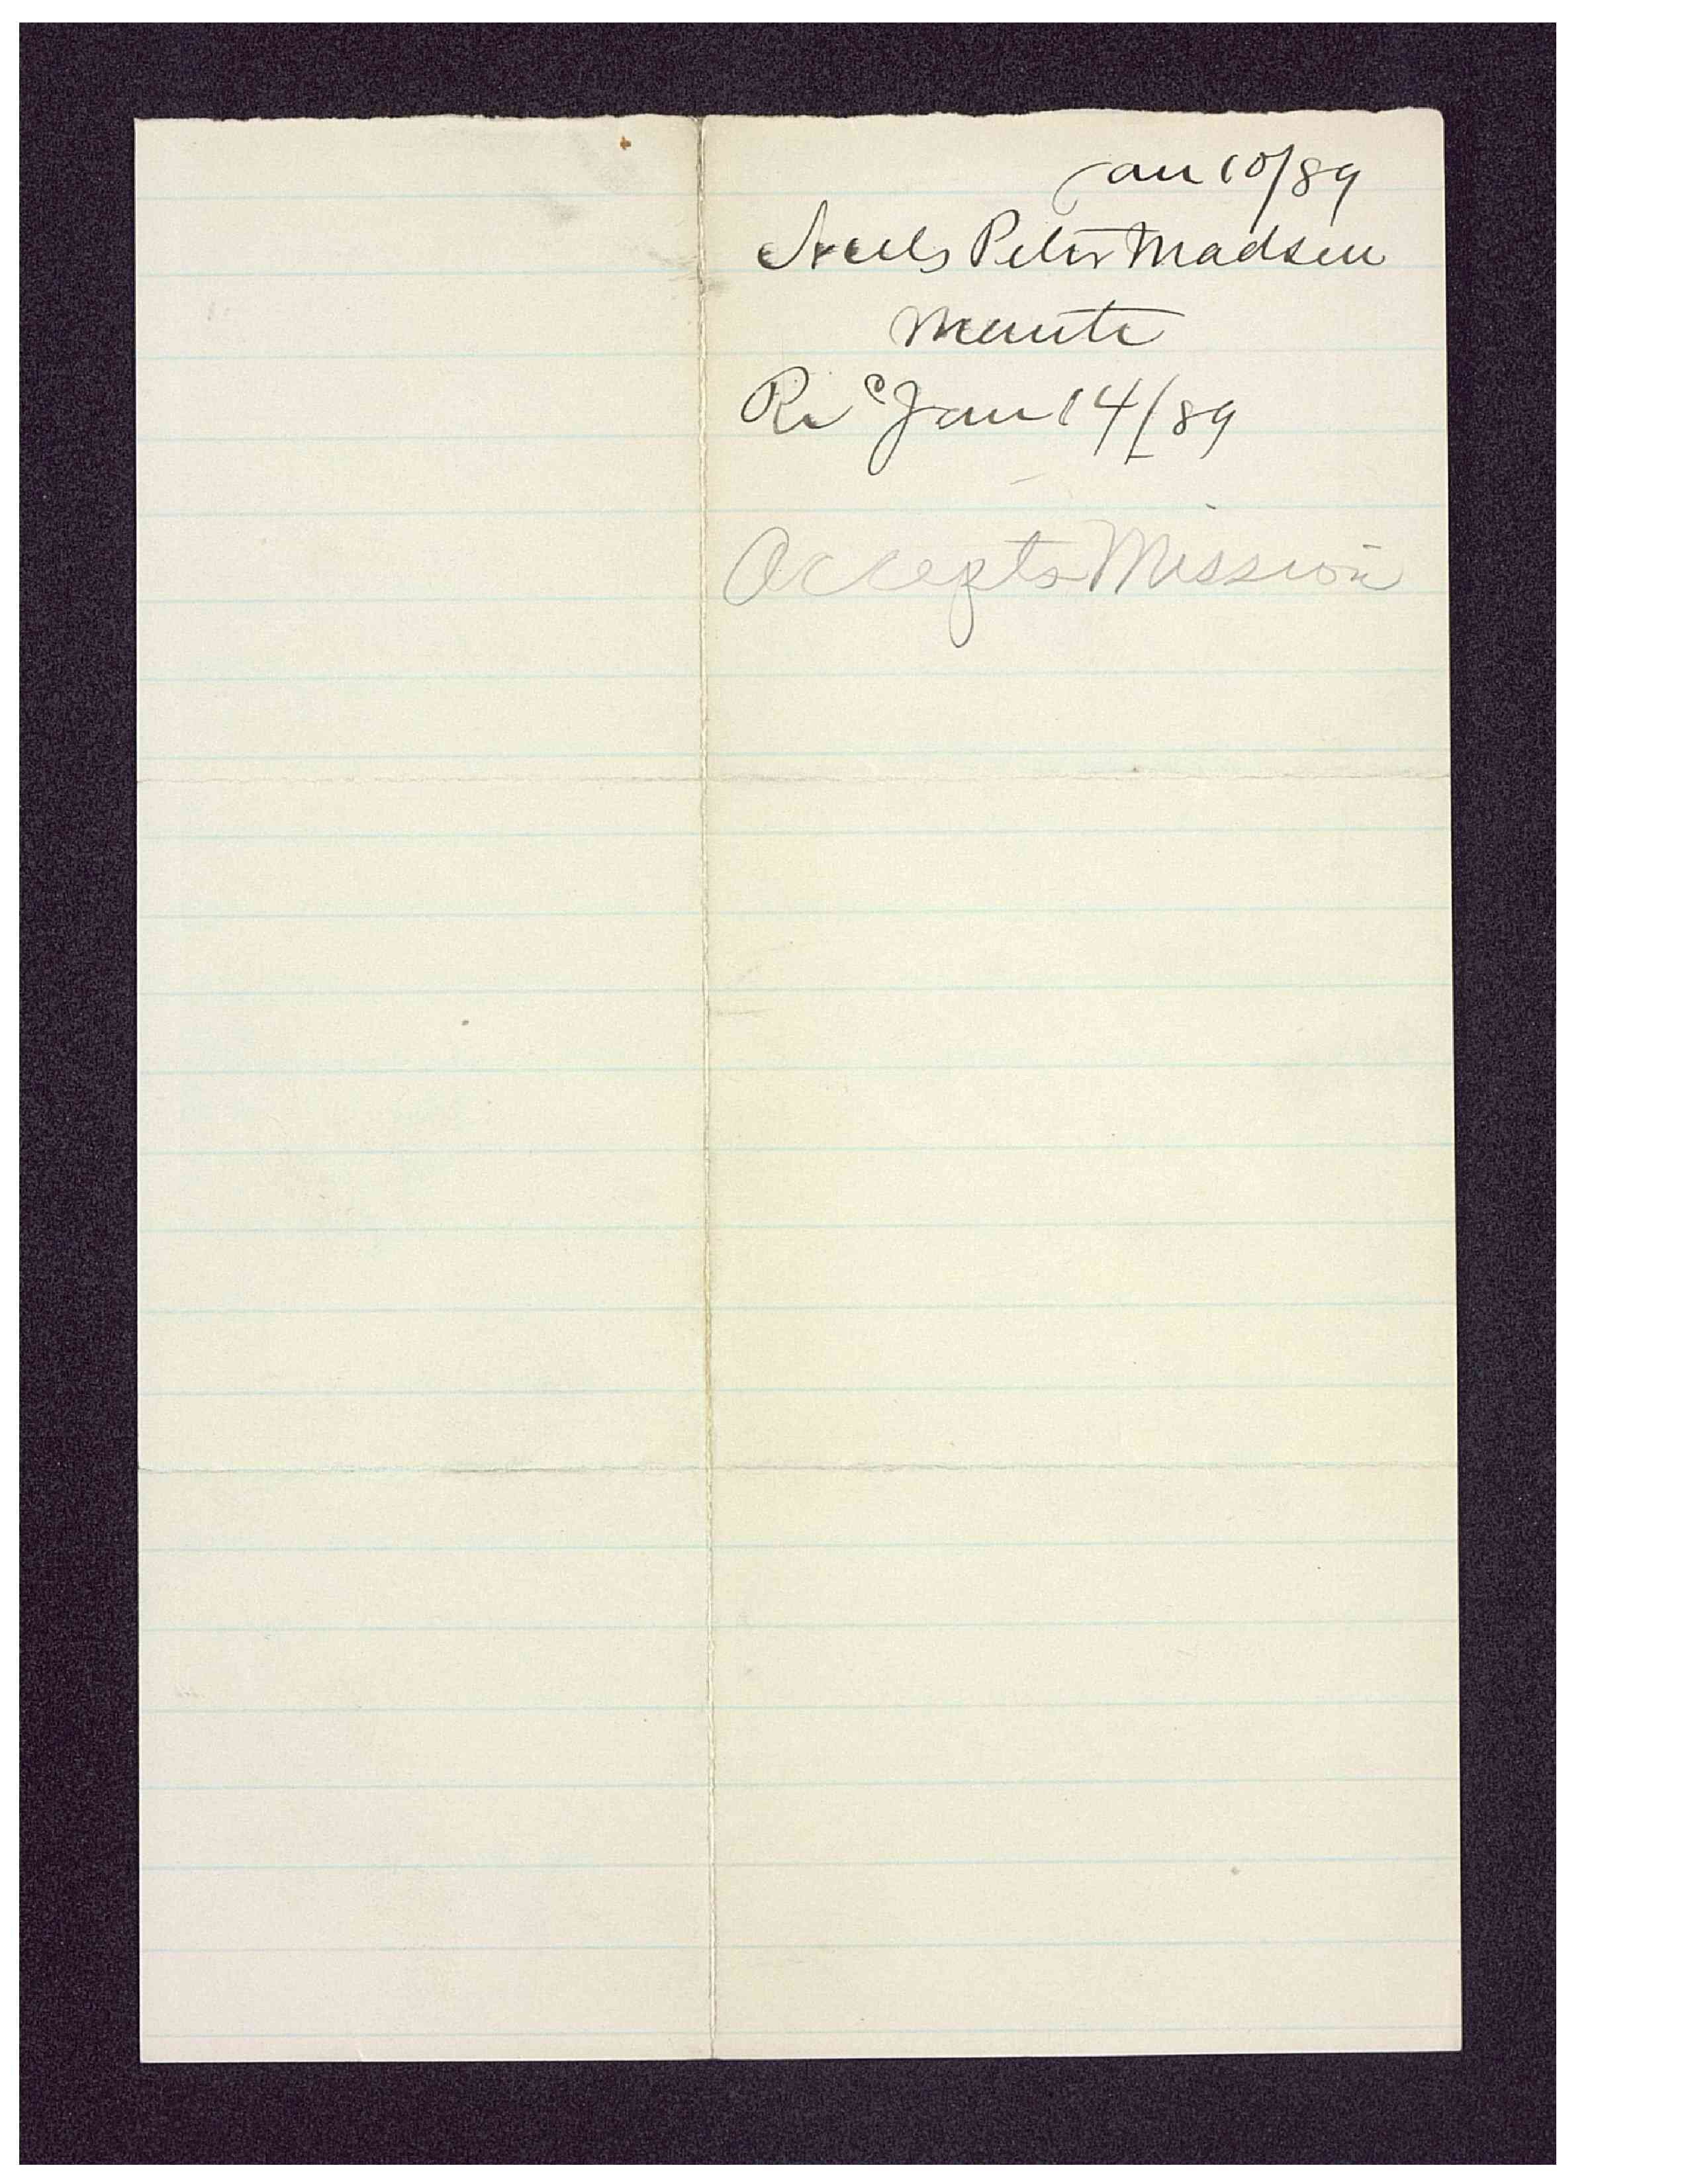 Jan 10/89
Neels Peter Madsen
Manti
Rec Jan 14/89
Accepts Mission